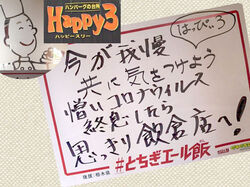 ハンバーグの台所
Happy3
ハッピースリー
はっぴぃ3
今が我慢
共に気をつけよう
憎いコロナウィルス
終息したら
思っきり飲食店へ!
後援:栃木県
#とちぎエール飯